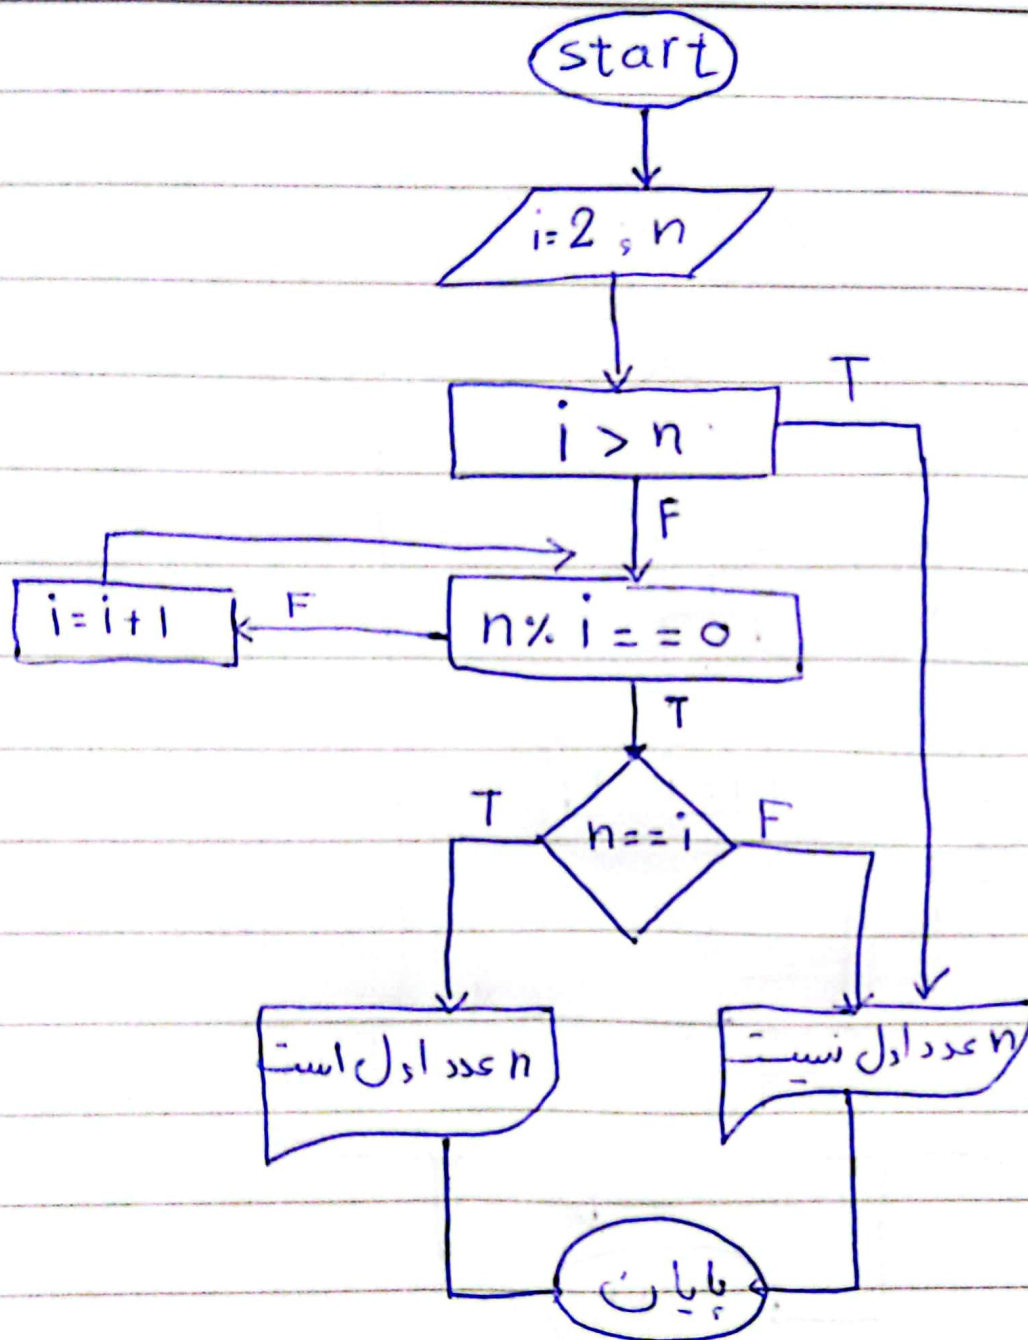 start
i=2 , n
i > n
T
F
i=i+1
F
n% i = = 0
T
T
n==i
F
n عدد اول است
n عدد اول نیست
پایان